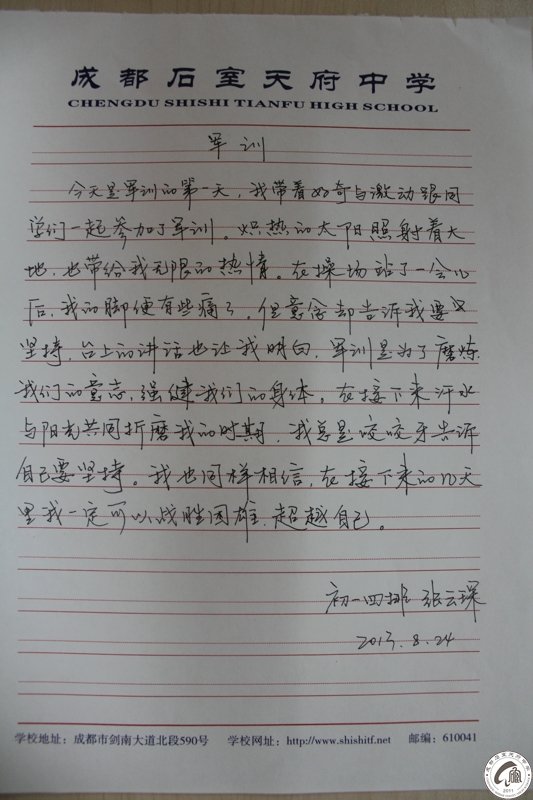 成都石室天府中学
CHENGDU SHISHI TIANFU HIGH SCHOOL
军训
今天是军训的第一天，我带着好奇与激动跟同
学们一起参加了军训。炽热的太阳照射着大
地，也带给我无限的热情。在操场站了一会儿
后，我的脚便有些痛了。但意念却告诉我要
坚持，台上的讲话也让我明白，军训是为了磨炼
我们的意志，强健我们的身体。在接下来汗水
与阳光共同折磨我的时期，我总是咬咬牙告诉
自己要坚持。我也同样相信，在接下来的几天
里我一定可以战胜困难，超越自己。
初一四排 张云琛
2013.8.24
学校地址：成都市剑南大道北段590号 学校网址：http://www.shishitf.net 邮编：610041
2011